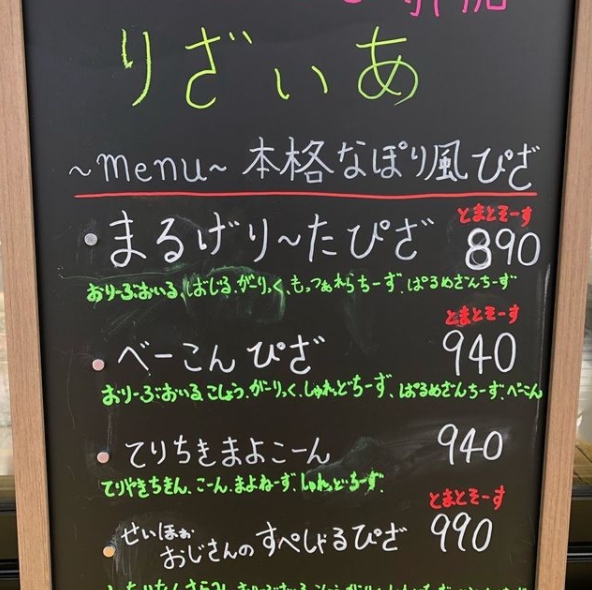 りざぃあ
~menu~ 本格なぽり風ぴざ
とまとそーす
・まるげり~たぴざ 890
おりーぶおいる、ばじる、がーりっく、もっつぁれらちーず、ぱるめざんちーず
とまとそーす
・べーこんぴざ 940
おりーぶおいる、こしょう、がーりっく、しゅれっどちーず、ぱるめざんちーず、べーこん
・てりちきまよこーん 940
てりやきちきん、こーん、まよねーず、しゅれっどちーず、
とまとそーす
・せいほぉ おじさんの すぺしゃるぴざ 990